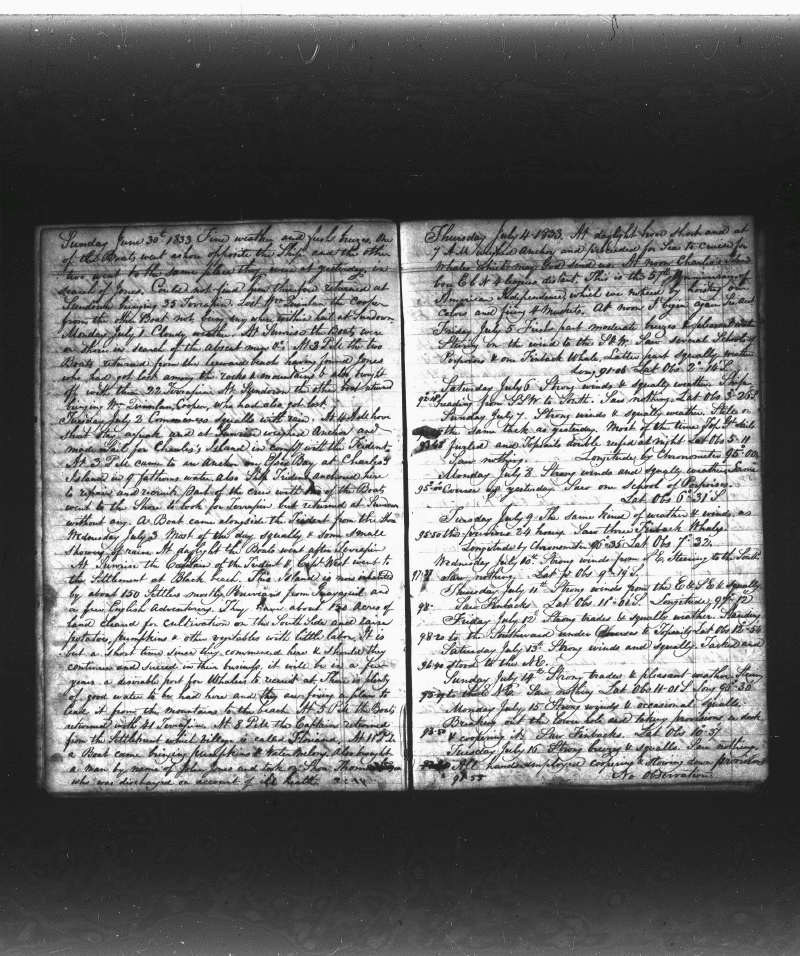 Sunday June 30th 1833 Fine weather and fresh breezes. One
of the Boats went ashore opposite the Ship and the other
two went to the same place they were at yesterday in
search of Jones. Could not find him therefore returned at
Sundown bringing 35 Terrapin. Lost Wm Quinlan the Cooper
from the Boat not being any where to this but at Sundown
Monday July 1 Cloudy weather. At Sunrise the Boats were
on Shore in search of the absent men &c. At 3 P.M. the two
Boats returned from the leeward beach having found Jones
who had got lost among the rocks & mountains & also brought
off with them 22 Terrapin At Sundown the other boat returned
bringing Wm Quinlan, Cooper, who had also got lost.
Tuesday July 2 Commences squally with rain. At 4 A.M. hove
short and at Sunrise weighed Anchor and
made Sail for Charles's Island in compy with the Trident.
At 3 P.M. came to an Anchor in Bay at Charles's
Island in 7 fathoms water. Also Ship Trident anchored here
to repair and recruit. Part of the crew with two of the Boats
went to the Shore to look for Terrapin but returned at Sundown
without any. A Boat came alongside the Trident from the Shore
Wednesday July 3 Most of the day squally & some small
showers of rain. At daylight the Boats went after Terrapin
At Sunrise the Captain of the Trident & Capt West went to
the Settlement at Black beach. This Island is now inhabited
by about 150 Settlers mostly Peruvians from Guayaquil and
a few English Adventurers. They have about 120 Acres of
land cleared for cultivation on the South Side and raise
potatoes, pumpkins & other vegetables with little labor. It is
but a short time since they commenced here & should they
continue and succeed in their business, it will be in a few
years a desirable port for Whalers to recruit at. There is plenty
of good water to be had here and they are giving a plan to
lead it from the mountains to the beach. At 5 P.M. the Boats
returned with 41 Terrapin. At 8 P.M. the Captains returned
from the Settlement which village is called Floriana. At 11 P.M.
a Boat came bringing pumpkins & Water Melons. Also brought
a man by name of John Jones and took on Shore Thomas
who was discharged on account of ill health.
Thursday July 4 1833. At daylight hove short and at
7 A.M. weighed Anchor and proceeded for Sea to cruise for
Whales Spirits may God send us. At noon Charles's Island
bore E b N 4 leagues distant. This is the 57th Anniversary of
American Independence which we noticed by hoisting our
colors and firing 4 Muskets. At noon I began again Sea date
Friday July 5 First part moderate breezes & pleasant weather
Steering on the wind to the S&W. Saw several Schools of
Porpoises & one Finback Whale. Latter part squally weather
Long 91°06 Lat Obs 2°14 S.
Saturday July 6 Strong winds & squally weather. Ship
heading from SSW to South. Saw nothing. Lat Obs 3°26 S
Sunday July 7. Strong winds & squally weather. Still on
the same tack as yesterday. Most of the time Top Gt Sails
furled and Topsails double reefed at night Lat Obs 5°11
Saw nothing. Longitude by Chronometer 95°00
Monday July 8 Strong winds and squally weather. Same
95°00 Courses as yesterday. Saw one school of Porpoises.
Lat Obs 6°31 S
Tuesday July 9 The same kind of weather & winds as
95°50 the previous 24 hours. Saw three Finback Whales.
Longitude by Chronometer 96°35. Lat Obs 7°32.
Wednesday July 10th Strong winds from S E. Steering to the South
Saw nothing. Lat p Obs 9°19 S.
Thursday July 11th Strong winds from the E & S E & squally
98° Saw Finbacks Lat Obs 11°01 S. Longitude 97°12
Friday July 12th Strong trades & squally weather. Standing
98°20 to the Southward under Courses & Topsails Lat Obs 12°54
Saturday July 13th Strong winds and squally. Tacked and
96°40 stood to the N E.
Sunday July 14th Strong trades & pleasant weather. Steering
to the E N E. Saw nothing Lat Obs 11°01 S Long 96°30
Monday July 15 Strong winds & occasional squalls.
Breaking out the lower hole and taking provisions on deck
93°50 & coopering it. Saw Finbacks. Lat Obs 10°37
Tuesday July 16 Strong breezes & squalls. Saw nothing.
All hands employed coopering & stowing down provisions
92°55 No Observation